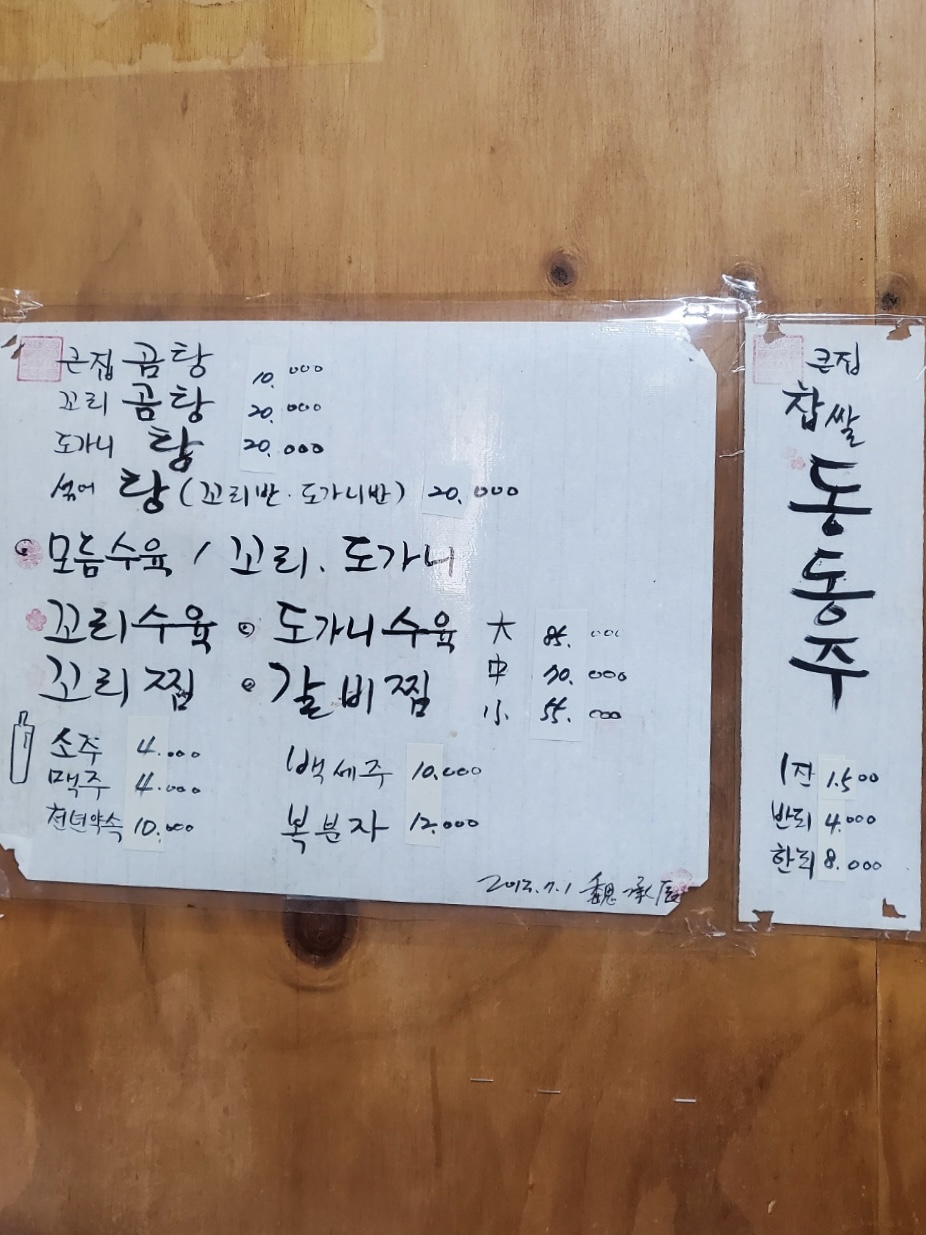 큰집 곰탕 10.000
꼬리 곰탕 20.000
도가니 탕 20.000
섞어 탕 (꼬리반·도가니반) 20.000
모듬수육 / 꼬리. 도가니
꼬리수육 도가니수육 大 85.000
꼬리찜 갈비찜 中 70.000
小 55.000
소주 4.000 백세주 10.000
맥주 4.000
천년약속 10.000 복분자 12.000
7.1 魏承
큰집
찹쌀
동동주
1잔 1.500
반되 4.000
한되 8.000